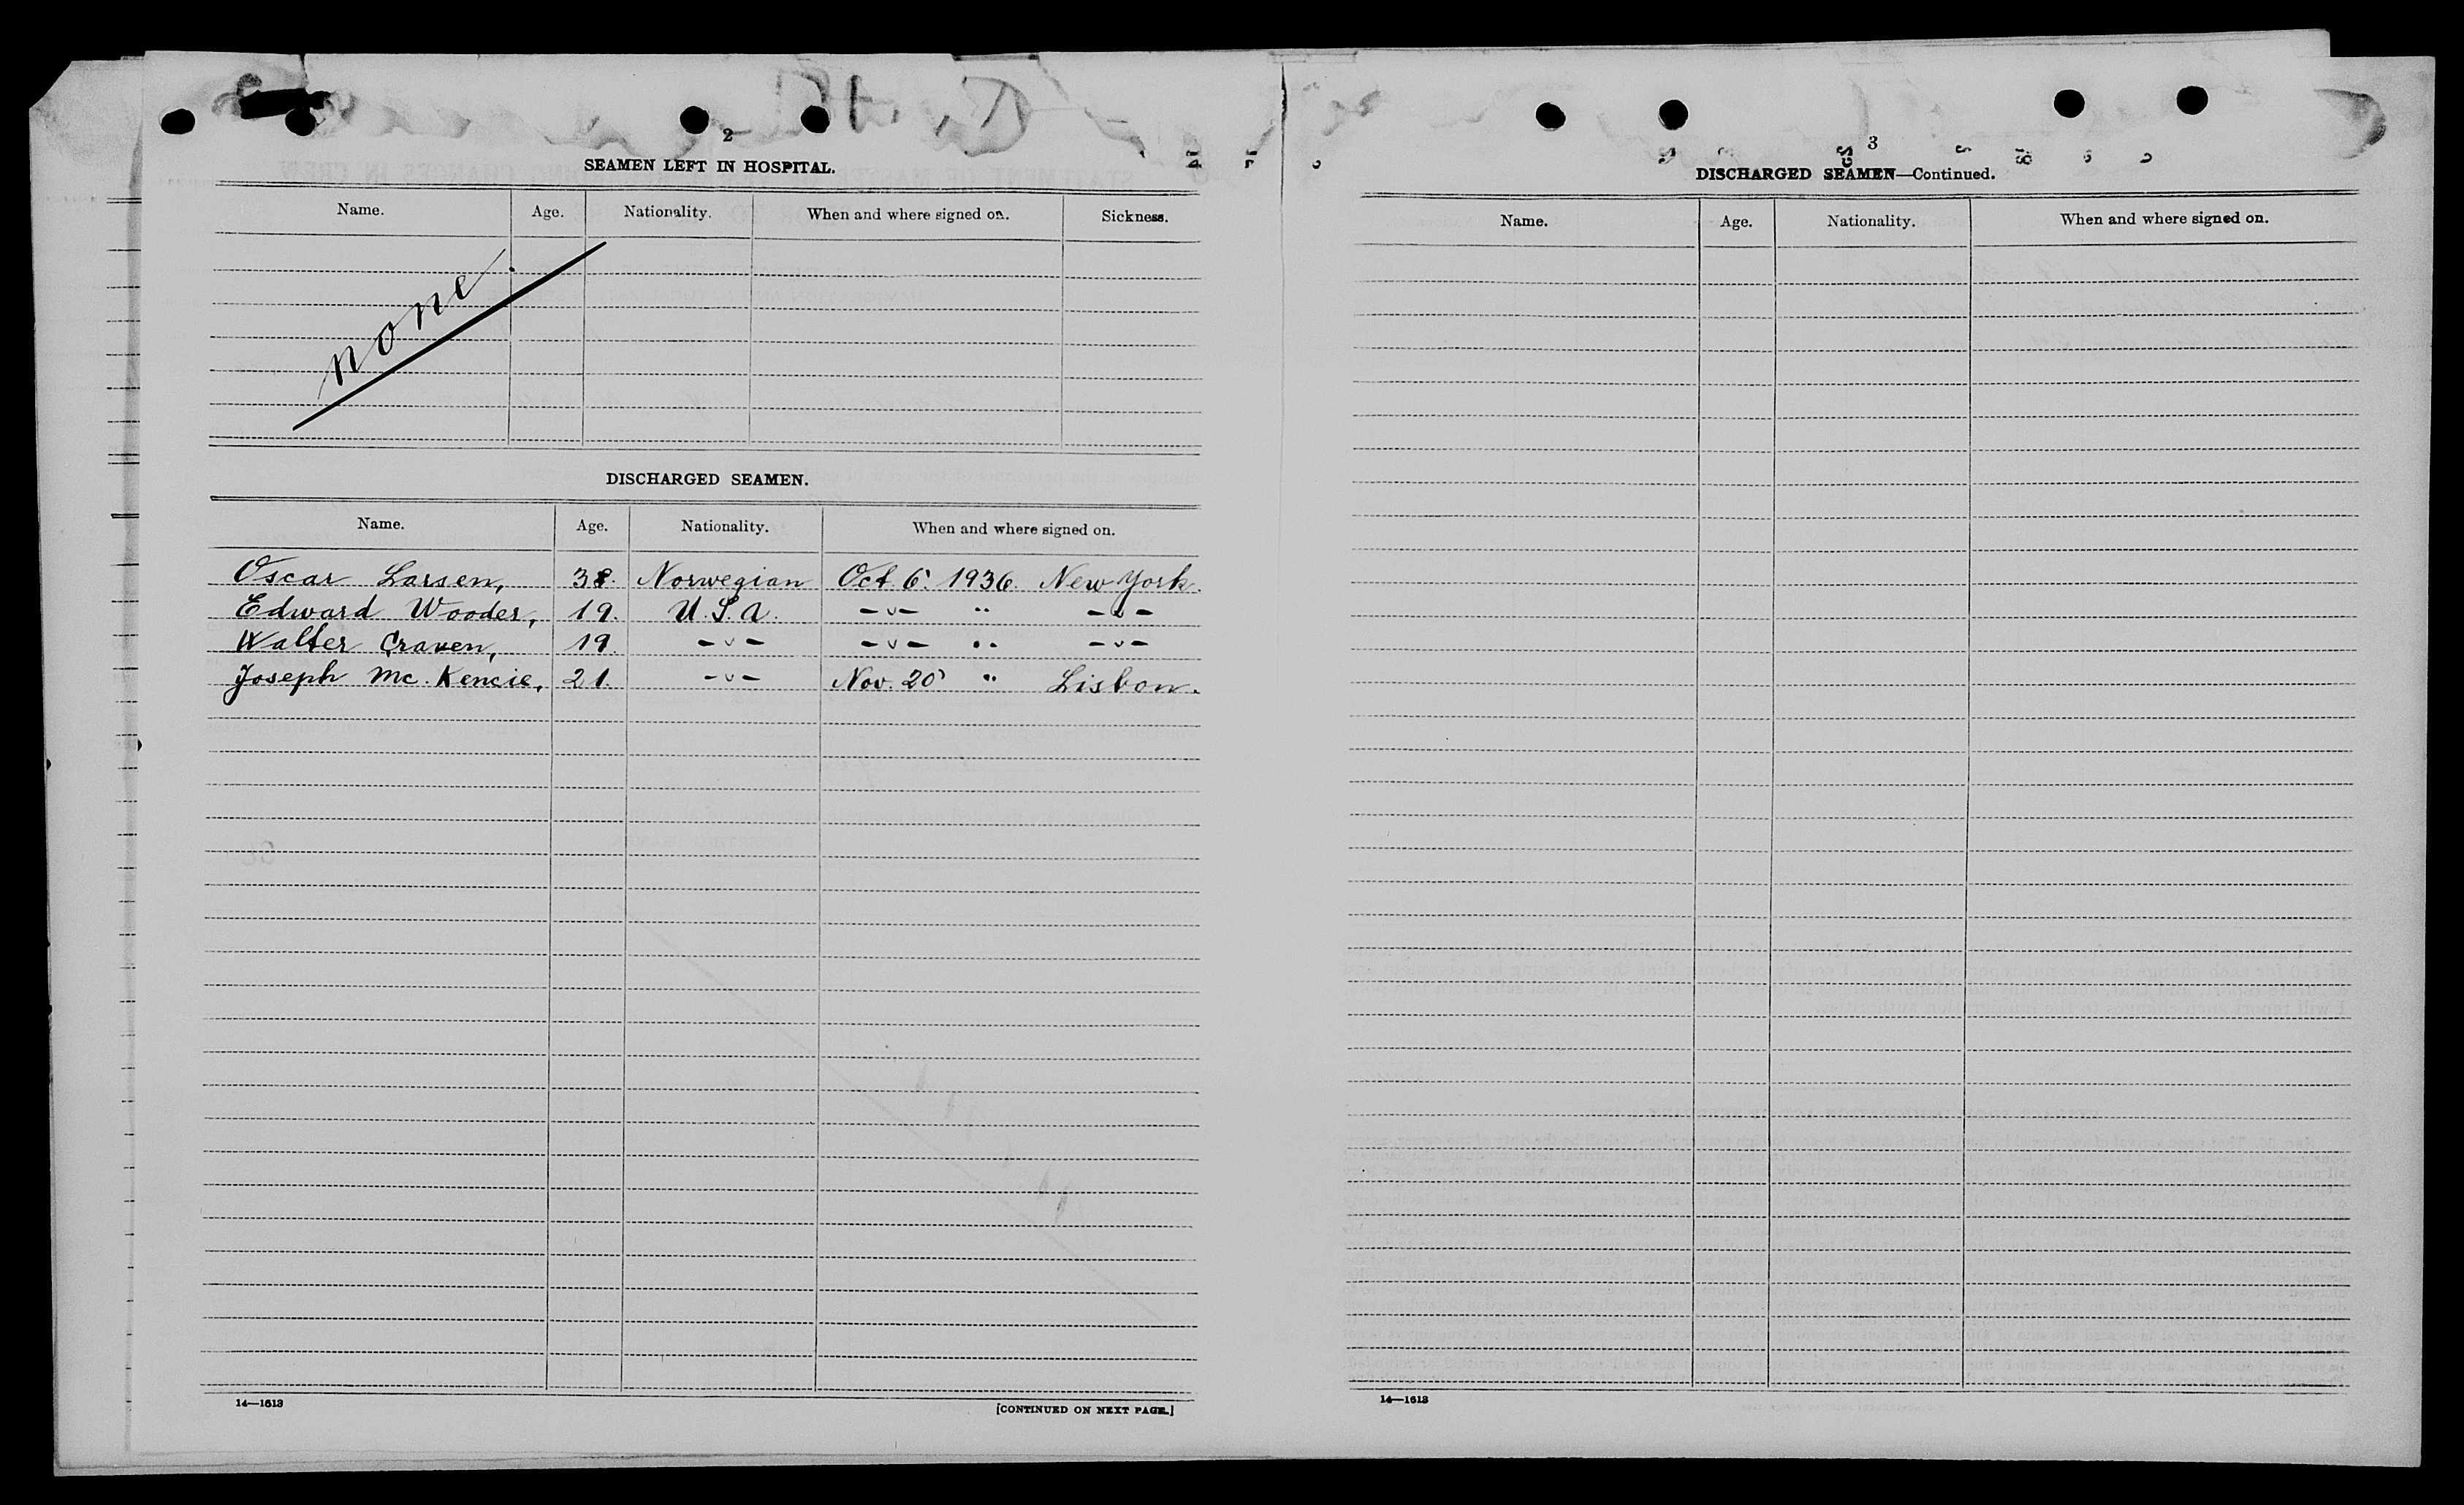 2
SEAMEN LEFT IN HOSPITAL.
Name. Age. Nationality. When and where signed on. Sickness.
none.
DISCHARGED SEAMEN.
Name. Age. Nationality. When and where signed on.
Oscar Larsen, 38. Norwegian Oct. 6. 1936. New York.
Edward Wooder, 19. U.S.A. -"- " -"-
Walter Craven, 19. -"- -"- " -"-
Joseph Mc. Kencie, 21. -"- Nov. 20 " Lisbon.
14—1613
[CONTINUED ON NEXT PAGE.]
3
DISCHARGED SEAMEN—Continued.
Name. Age. Nationality. When and where signed on.
14—1613